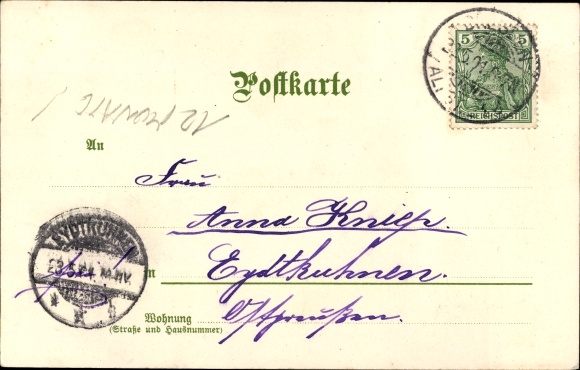 5 5
REICHSPOST
Postkarte
12 MONATE
An
Frau
Anna Knilp.
EYDTKUHNEN
in
Eydtkuhnen.
Wohnung
(Straße und Hausnummer)
Ostpreußen.